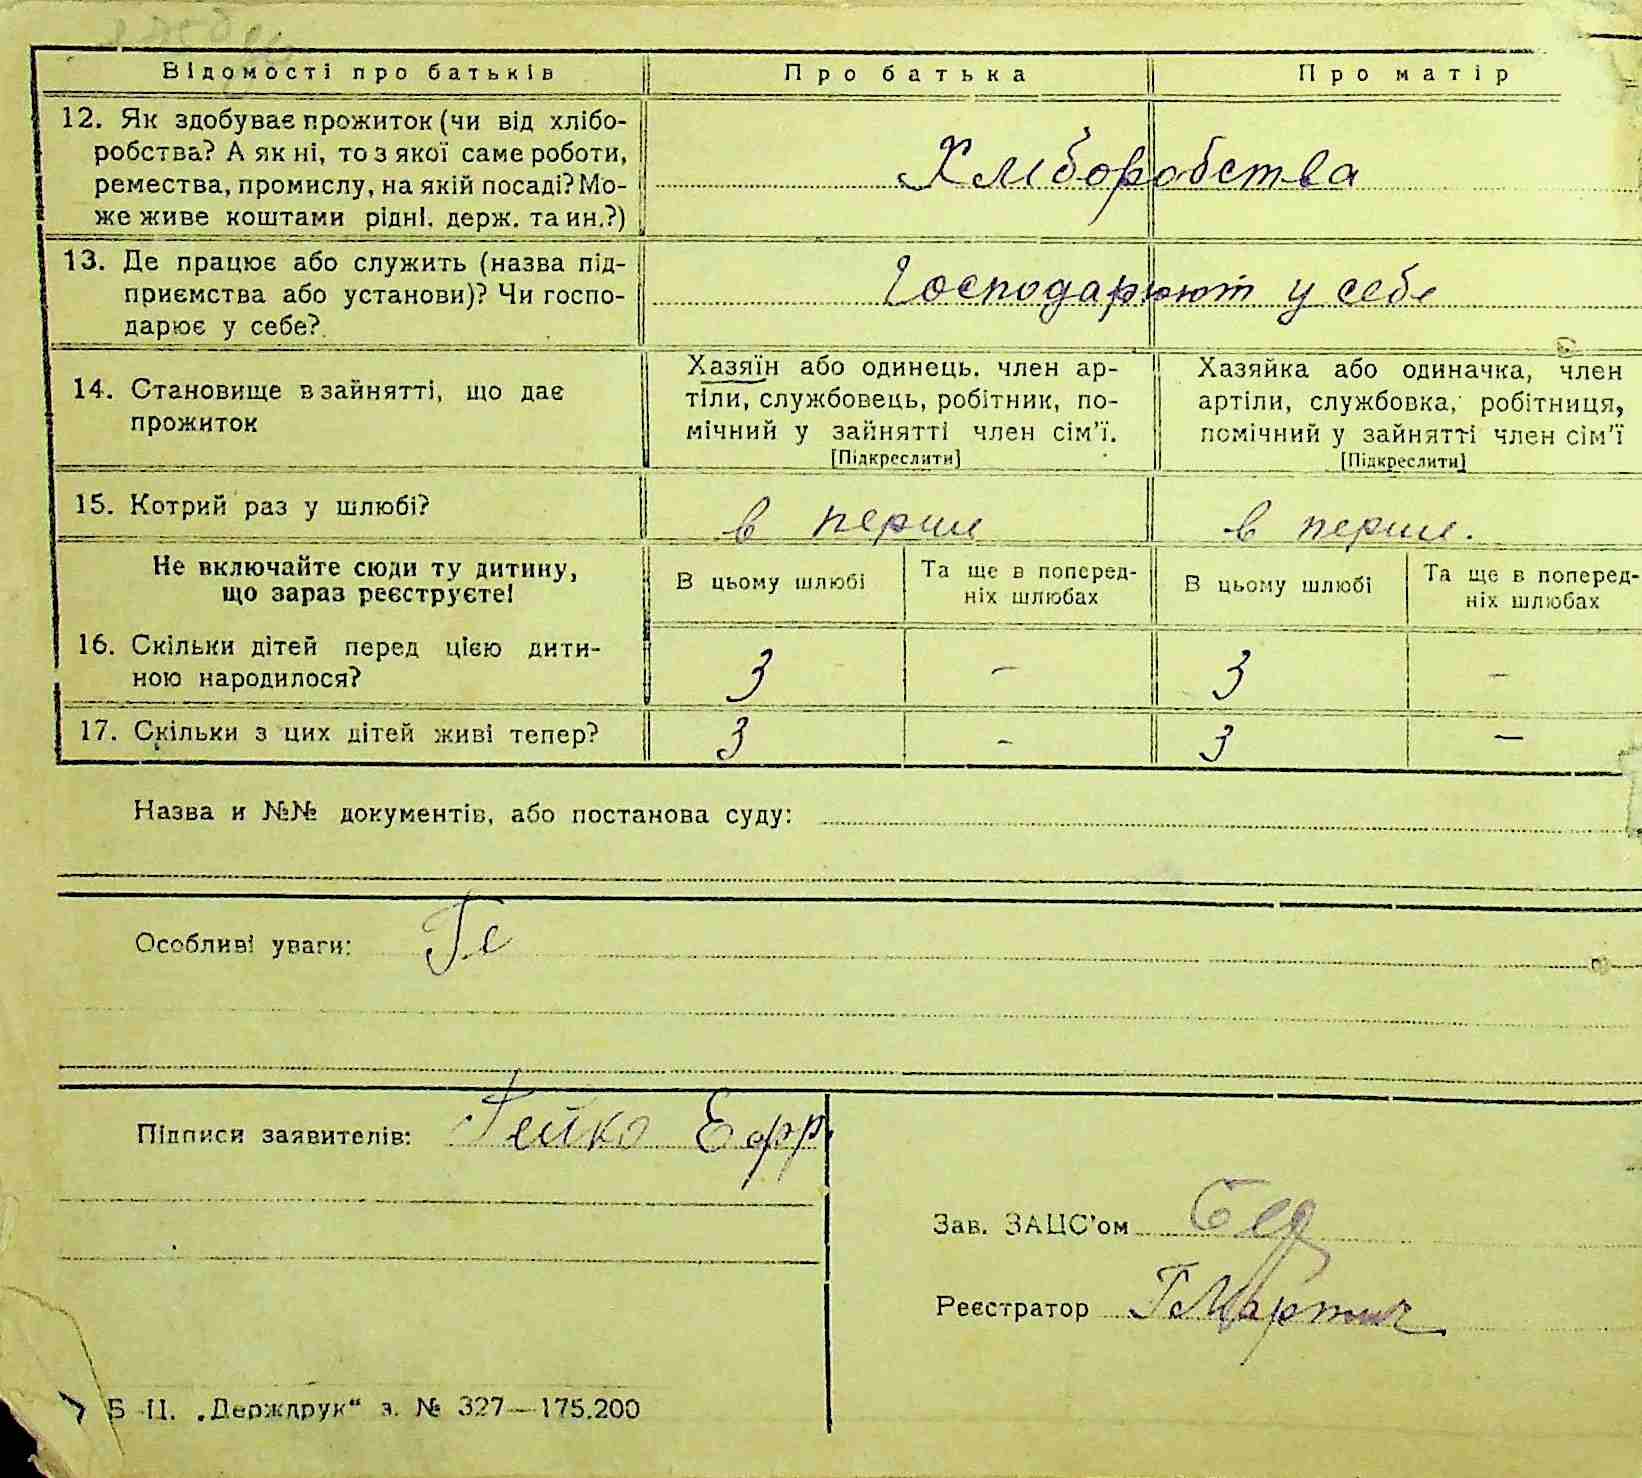 Відомості про батьків Про батька Про матір
12. Як здобуває прожиток (чи від хлібо-
робства? А як ні, то з якої саме роботи,
ремества, промислу, на якій посаді? Мо-
же живе коштами рідні, держ. та ин.?)
Хліборобства
13. Де працює або служить (назва під-
приємства або установи)? Чи госпо-
дарює у себе?
Господарюют у себе
14. Становище в зайнятті, що дає
прожиток
Хазяїн або одинець, член ар-
тіли, службовець, робітник, по-
мічний у зайнятті член сім'ї.
[Підкреслити]
Хазяйка або одиначка, член
артіли, службовка, робітниця,
помічний у зайнятті член сім'ї
[Підкреслити]
15. Котрий раз у шлюбі? в перше в перше.
Не включайте сюди ту дитину,
що зараз реєструєте!
В цьому шлюбі
Та ще в поперед-
ніх шлюбах
В цьому шлюбі
Та ще в поперед-
ніх шлюбах
16. Скільки дітей перед цією дити-
ною народилося?
3 - 3 -
17. Скільки з цих дітей живі тепер? 3 - 3 -
Назва и №№ документів, або постанова суду:
Особливі уваги: Ге
Підписи заявителів: Гейко Ефр.
Зав. ЗАЦС'ом
Реєстратор
Б-Ц. „Держдрук“ з. № 327—175.200